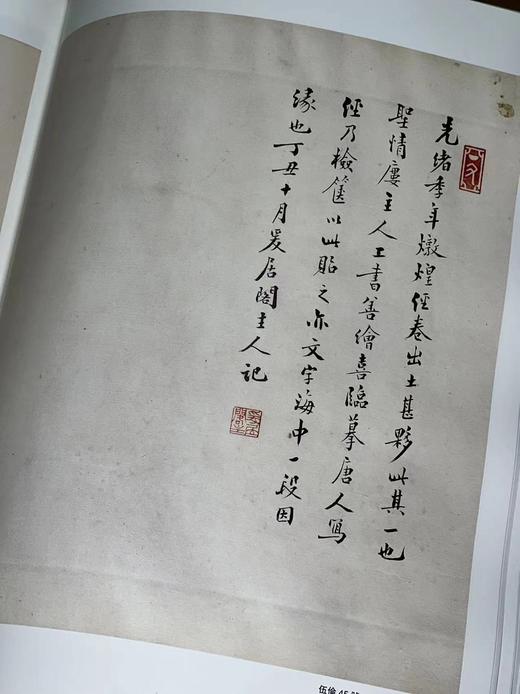 光緒季年燉煌經卷出土甚夥此其一也
聖情廔主人工書善繪喜臨摹唐人寫
經乃檢篋以此貽之亦文字海中一段因
緣也丁丑十月爰居閣主人記
伍倫